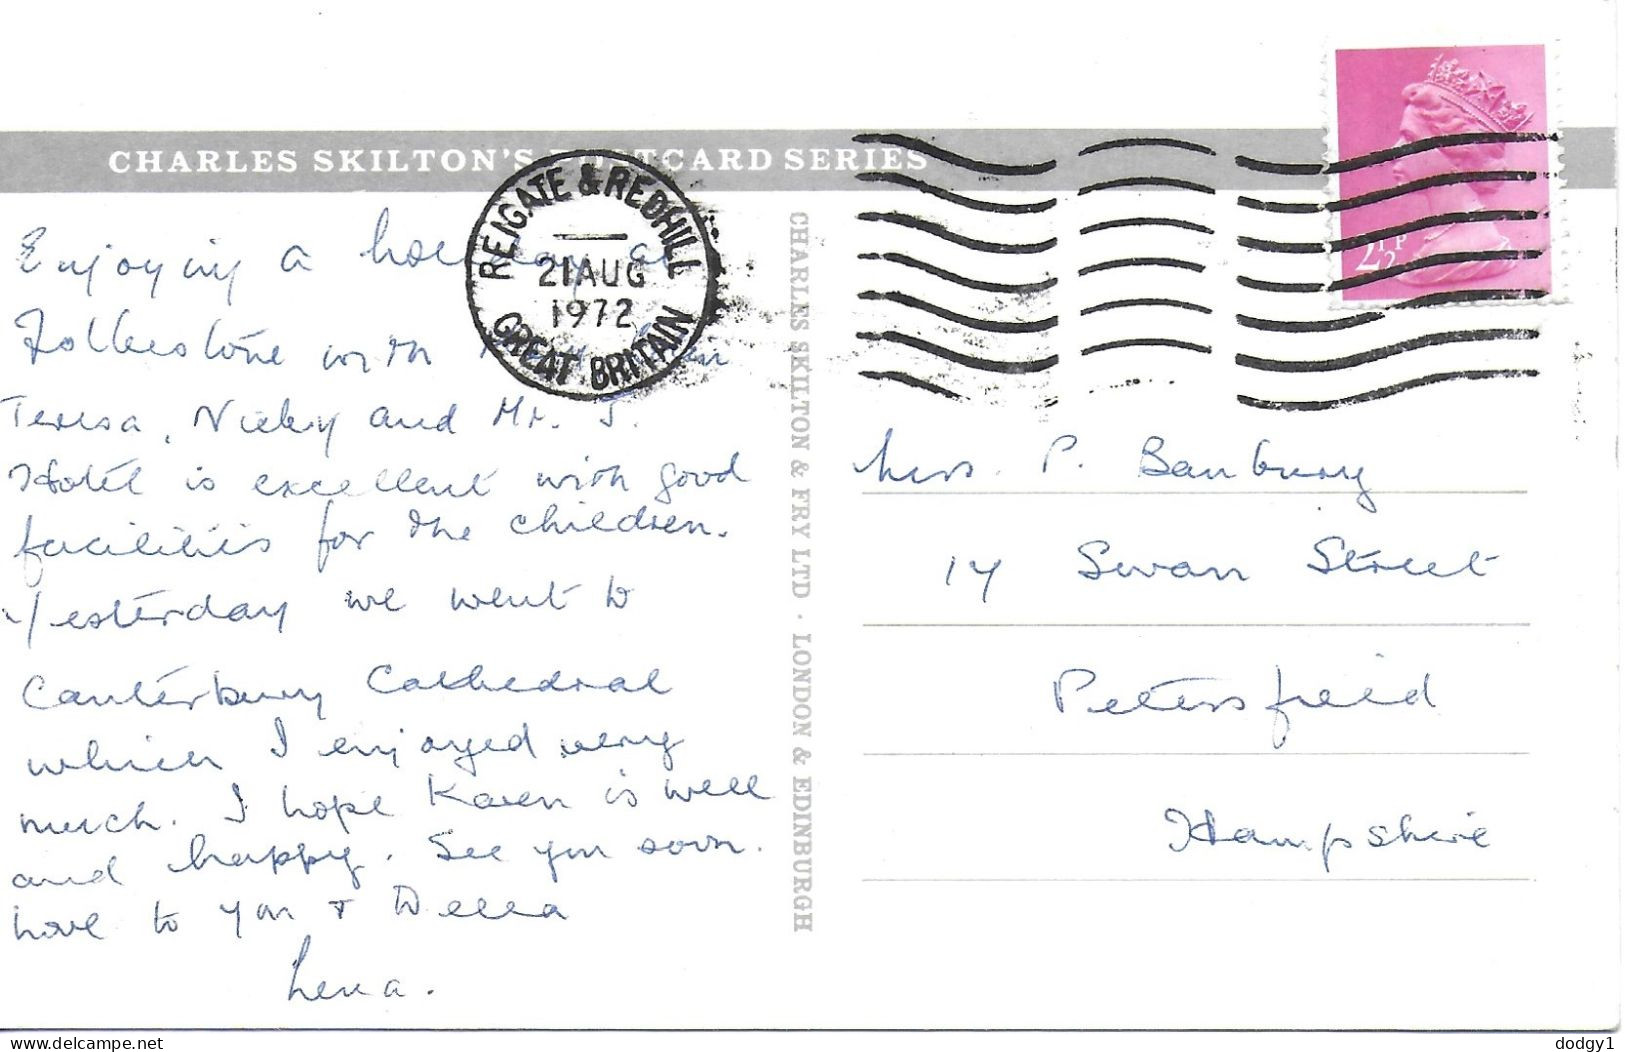 CHARLES SKILTON'S POSTCARD SERIES
REIGATE & REDHILL
21 AUG
1972
GREAT BRITAIN
2½P
Enjoying a holiday at
Folkestone with
Teresa, Nicky and Mr. J.
Hotel is excellent with good
facilities for the children.
Yesterday we went to
Canterbury Cathedral
which I enjoyed very
much. I hope Karen is well
and happy. See you soon.
Love to you &
Lena.
CHARLES SKILTON & FRY LTD · LONDON & EDINBURGH
Mrs. P. Banbury
14 Swan Street
Petersfield
Hampshire
dodgy1
delcampe.net